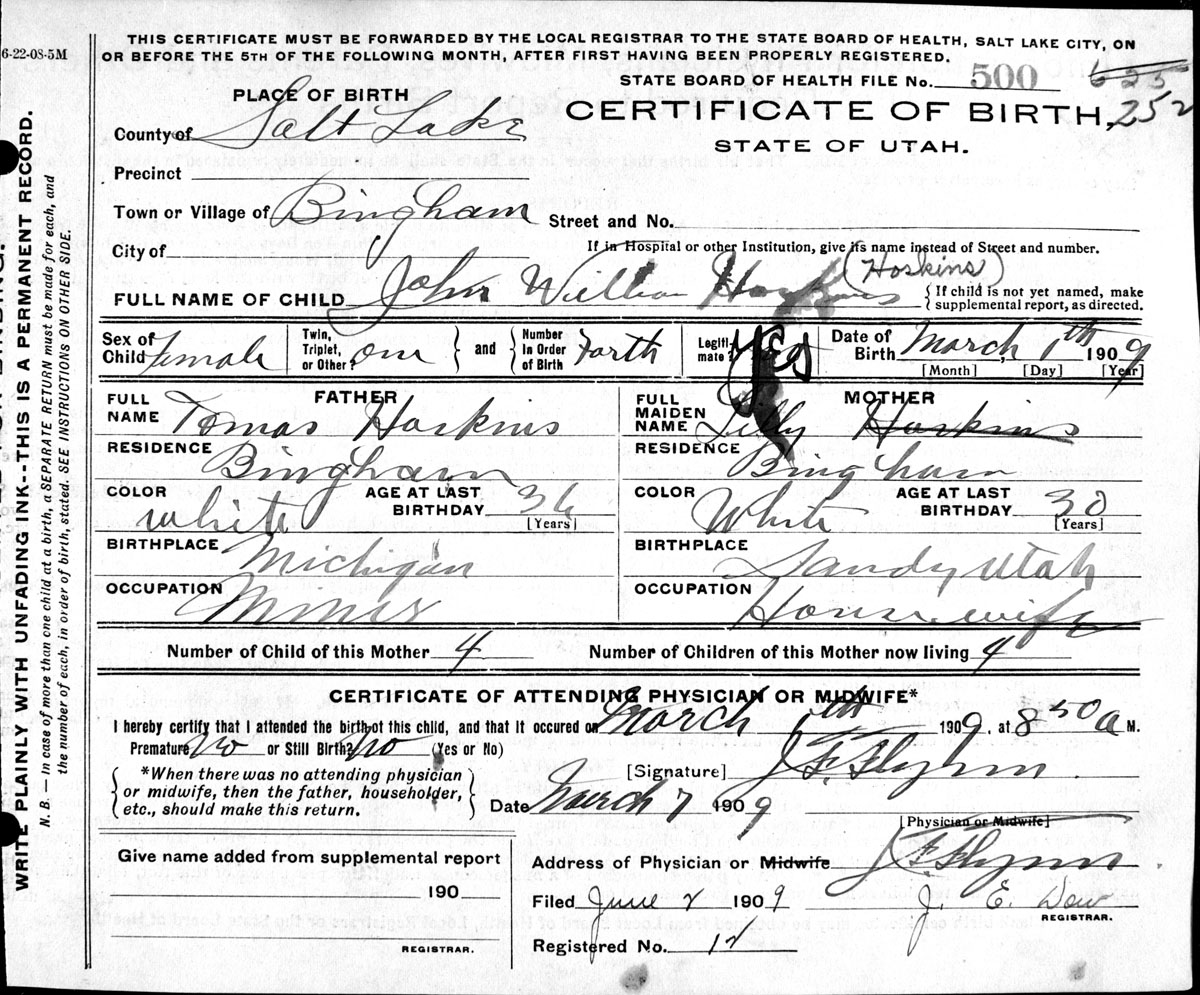 6-22-08-5M
THIS CERTIFICATE MUST BE FORWARDED BY THE LOCAL REGISTRAR TO THE STATE BOARD OF HEALTH, SALT LAKE CITY, ON
OR BEFORE THE 5TH OF THE FOLLOWING MONTH, AFTER FIRST HAVING BEEN PROPERLY REGISTERED.
STATE BOARD OF HEALTH FILE No. 500 625
PLACE OF BIRTH
CERTIFICATE OF BIRTH, 252
County of Salt Lake
STATE OF UTAH.
Precinct
Town or Village of Bingham Street and No.
City of
If in Hospital or other Institution, give its name instead of Street and number.
FULL NAME OF CHILD John William Hoskins (Hoskins)
{If child is not yet named, make
supplemental report, as directed.
Sex of Child Female Twin, Triplet, or Other? one } and { Number in Order of Birth Forth Legitimate? Yes Date of Birth March 1th 1909
[Month] [Day] [Year]
FATHER
FULL NAME Tomas Hoskins
RESIDENCE Bingham
COLOR White AGE AT LAST BIRTHDAY 36
[Years]
BIRTHPLACE Michigan
OCCUPATION Miner
MOTHER
FULL MAIDEN NAME Lilly Hoskins
RESIDENCE Bingham
COLOR White AGE AT LAST BIRTHDAY 30
[Years]
BIRTHPLACE Sandy Utah
OCCUPATION Housewife
Number of Child of this Mother 4 Number of Children of this Mother now living 4
CERTIFICATE OF ATTENDING PHYSICIAN OR MIDWIFE*
I hereby certify that I attended the birth of this child, and that it occured on March 1th 1909, at 8 50 a M.
Premature No or Still Birth? No (Yes or No)
{*When there was no attending physician
or midwife, then the father, householder,
etc., should make this return.}
[Signature] J. F. Flynn
Date March 7 1909
[Physician or Midwife]
Give name added from supplemental report
190
REGISTRAR.
Address of Physician or Midwife J. F. Flynn
Filed June 2 1909 J. E. Dew
REGISTRAR.
Registered No. 12
WRITE PLAINLY WITH UNFADING INK--THIS IS A PERMANENT RECORD.
N. B. — In case of more than one child at a birth, a SEPARATE RETURN must be made for each, and
the number of each, in order of birth, stated. SEE INSTRUCTIONS ON OTHER SIDE.